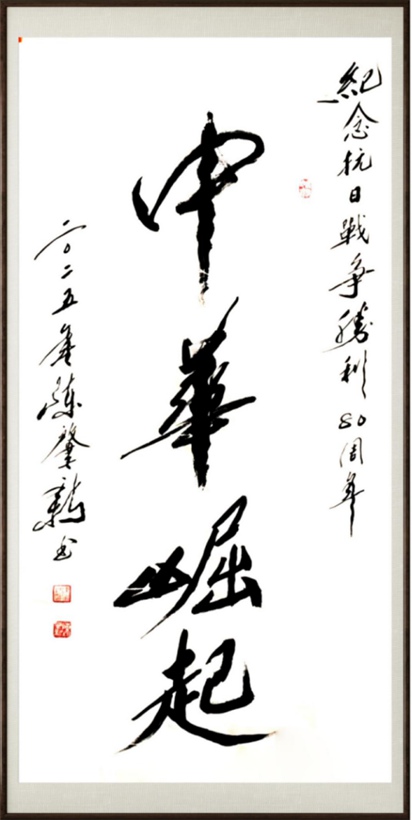 紀念抗日戰爭勝利80周年
中華崛起
二〇二五年 肇 书